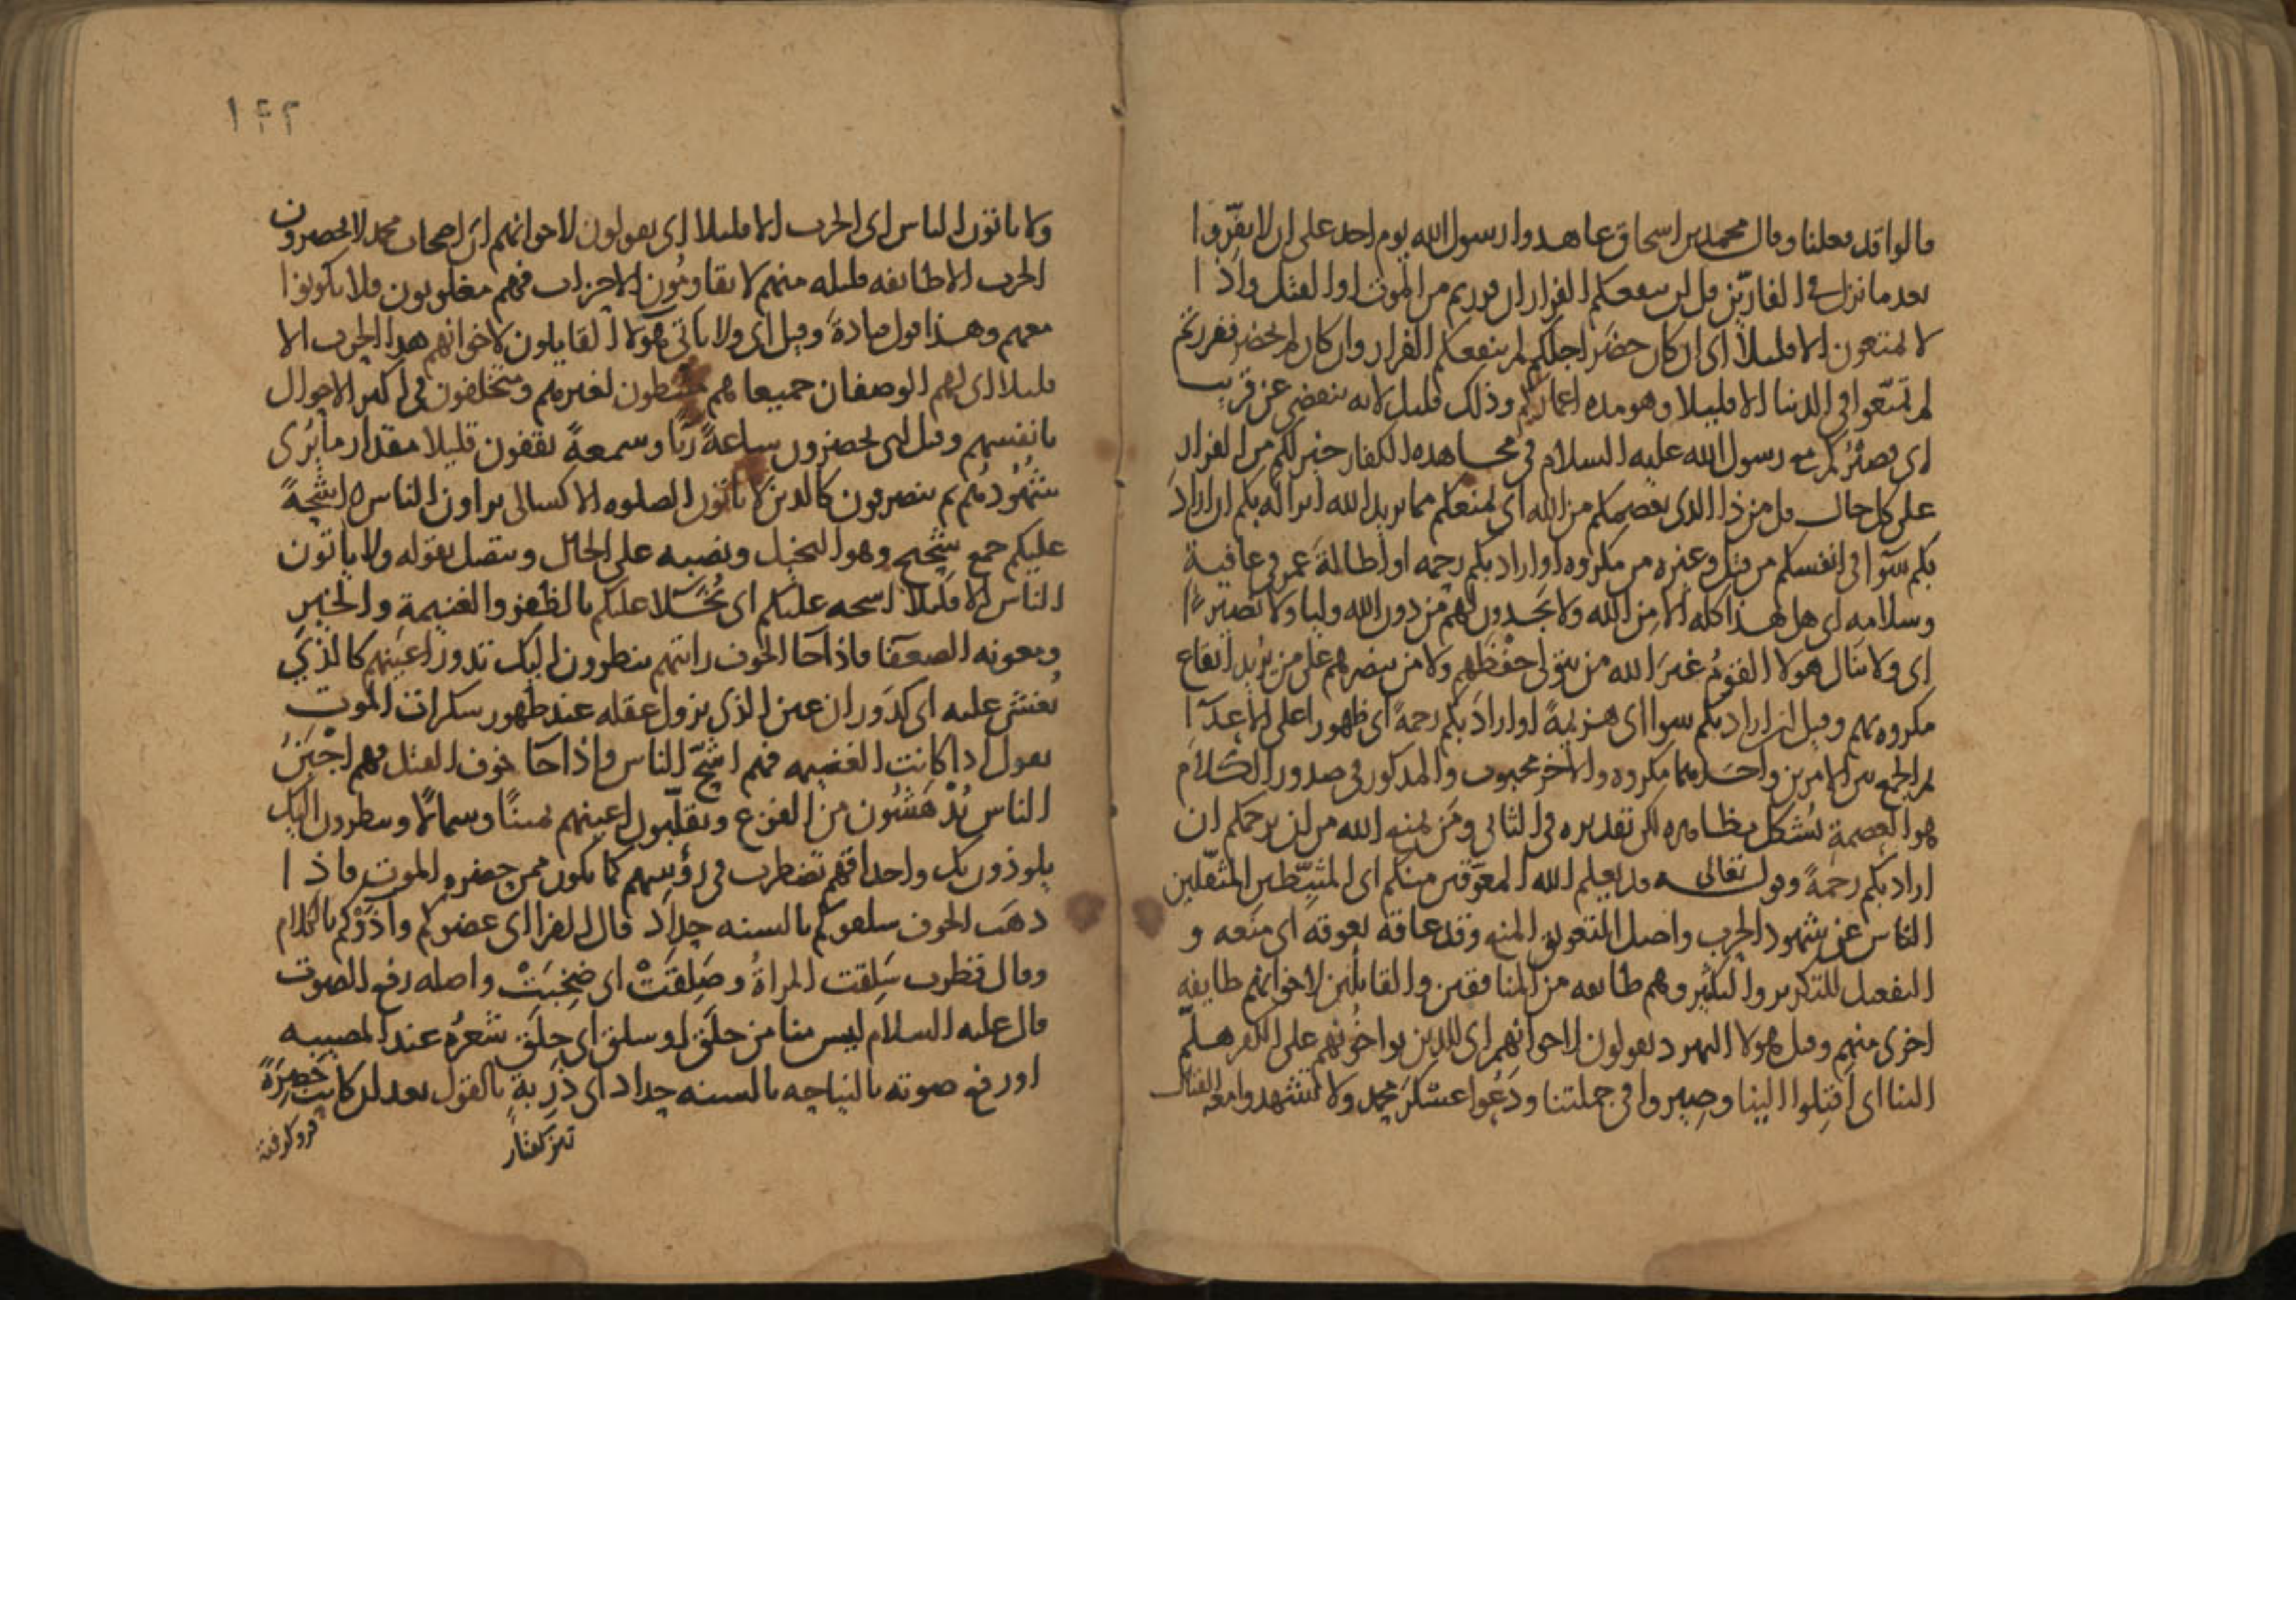 قالوا قد فعلنا وقال محمد بن اسحاق عاهدوا رسول الله يوم احد على ان لا يفرّوا
بعد ما نزل في الفارّين قل لن ينفعكم الفرار ان فررتم من الموت او القتل واذا
لا تمتعون الا قليلا اى ان كان حضر اجلكم لم ينفعكم الفرار وان كان لم يحضر ففررتم
لم تمتّعوا في الدنيا الا قليلا وهو مده اعماركم وذلك قليل لانه ينقضي عن قريب
اى فصبركم مع رسول الله عليه السلام في مجاهده الكفار خير لكم من الفرار
على كل حال قل من ذا الذى يعصمكم من الله اى يمنعكم مما يريد الله انزاله بكم ان اراد
بكم سوآ في انفسكم من قتل وغيره من مكروه او اراد بكم رحمه او اطالة عمر في عافية
وسلامه اى هل هذا كله الا من الله ولا يجدون لهم من دون الله وليا ولا نصيرًا
اى ولا ينال هولا القوم غير الله من يتولى حفظهم ولا من ينصرهم على من يريد ايقاع
مكروه بهم وقيل ان اراد بكم سوا اى هزيمةً او اراد بكم رحمةً اى ظهورا على الاعدآ
لم الجمع بين الامرين واحدهما مكروه والاخر محبوب والمذكور في صدور الكلام
هو العصمة يشكل بظاهره لكن تقديره في الثاني ومن يمنع الله من ان يرحمكم ان
اراد بكم رحمةً وقوله تعالى قد يعلم الله المعوّقين منكم اى المثبّطين المثقّلين
الناس عن شهود الحرب واصل التعويق المنع وقد عاقه يعوقه اى منعه و
التفعيل للتكرير والتكثير وهم طايفه من المنافقين والقايلين لاخوانهم طايفه
اخرى منهم وقيل هولا اليهود يقولون لاخوانهم اى للذين يواخونهم على الكفر هلمّ
الينا اى اقبلوا الينا وصيروا في جملتنا ودعوا عسكر محمد ولا تشهدوا معه القتال
١٤٢
ولا ياتون الناس اى الحرب الا قليلا اى يقولون لاخوانهم ان اصحاب محمد لا يحضرون
الحرب الا طايفه قليله منهم لا يقاومون الاحزاب فهم مغلوبون فلا يكونوا
معهم وهذا قول قتادة وقيل اى ولا ياتى هولا القايلون لاخوانهم هذا الحرب الا
قليلا اى لهم الوصفان جميعا هم مثبطون لغيرهم ومتخلفون في اكثر الاحوال
بانفسهم وقيل اى يحضرون ساعةً ريًا وسمعةً يقفون قليلا مقدار ما يُرى
شهودهم ثم ينصرفون كالذين لا ياتون الصلوه الا كسالى يراون الناس اشحةً
عليكم جمع شحيح وهو البخيل ونصبه على الحال ويتصل بقوله ولا ياتون
الناس الا قليلا اشحه عليكم اى بُخّلا عليكم بالظفر والغنيمة والخير
ومعونه الضعفا فاذا جا الخوف رايتهم ينظرون اليك تدور اعينهم كالذي
يغشى عليه اى كدوران عين الذى يزول عقله عند ظهور سكرات الموت
يقول اذا كانت الغنيمه فهم اشحّ الناس واذا جا خوف القتل فهم اجبن
الناس يُدهشون من الفزع ويقلّبون اعينهم يمينًا وشمالًا وينظرون اليك
يلوذون بك واحداقهم تضطرب في رؤسهم كما يكون ممن حضره الموت فاذا
ذهب الخوف سلقوكم بالسنه حداد قال الفرا اى عضوكم واذوكم بالكلام
وقال قطرب سلقت المراةُ وصلقت اى ضخبت واصله رفع الصوت
قال عليه السلام ليس منا من حلق او سلق اى حلق شعره عند المصيبه
او رفع صوته بالنياحه بالسنه حداد اى ذربةٍ بالقول بعد ان كانت حصرةً
تيز كفتار
فرو كرفته